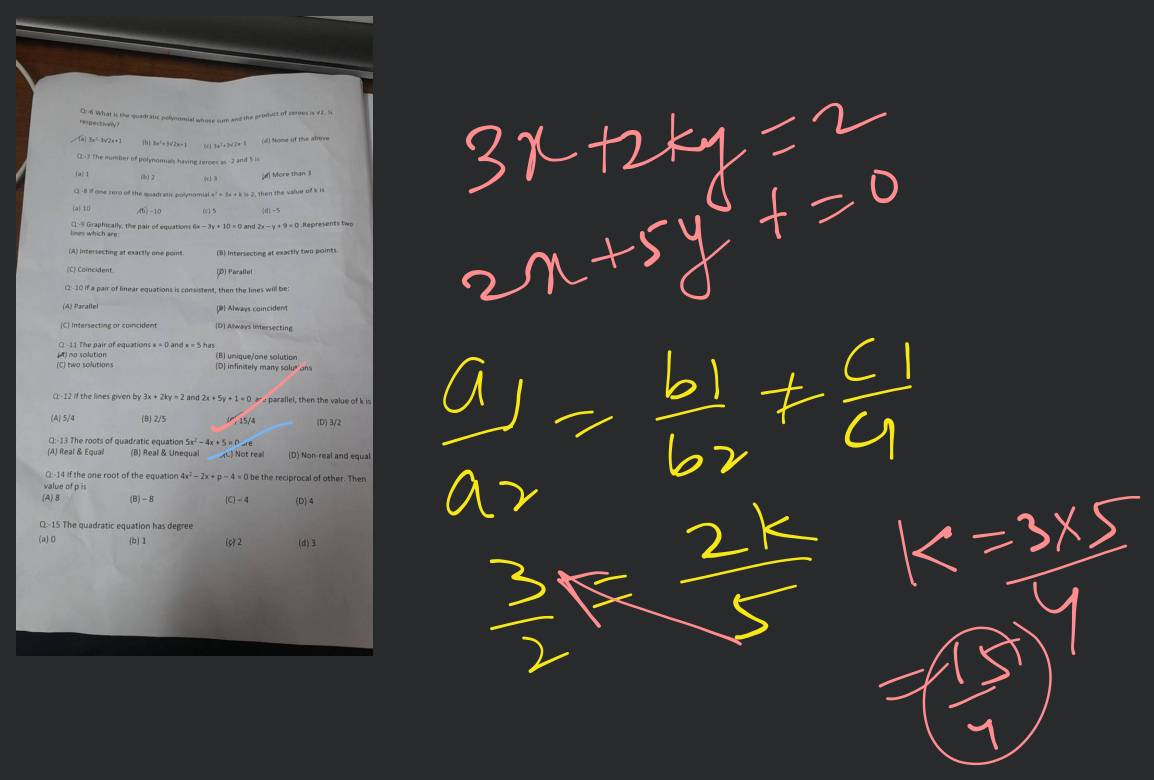 Q:-6 What is the quadratic polynomial whose sum and the product of zeroes is √2, ⅓
respectively?
(a) 3x²-3√2x+1 (b) 3x²+3√2x+1 (c) 3x²+3√2x-1 (d) None of the above
Q:-7 The number of polynomials having zeroes as -2 and 5 is
(a) 1 (b) 2 (c) 3 (d) More than 3
Q:-8 If one zero of the quadratic polynomial x² + 3x + k is 2, then the value of k is
(a) 10 (b) -10 (c) 5 (d) -5
Q:-9 Graphically, the pair of equations 6x – 3y + 10 = 0 and 2x – y + 9 = 0 .Represents two
lines which are:
(A) Intersecting at exactly one point. (B) Intersecting at exactly two points.
(C) Coincident. (D) Parallel
Q:-10 If a pair of linear equations is consistent, then the lines will be:
(A) Parallel (B) Always coincident
(C) Intersecting or coincident (D) Always intersecting
Q:-11 The pair of equations x = 0 and x = 5 has
(A) no solution (B) unique/one solution
(C) two solutions (D) infinitely many solutions
Q:-12 If the lines given by 3x + 2ky = 2 and 2x + 5y + 1 = 0 are parallel, then the value of k is
(A) 5/4 (B) 2/5 15/4 (D) 3/2
Q:-13 The roots of quadratic equation 5x² – 4x + 5 = 0 are
(A) Real & Equal (B) Real & Unequal (C) Not real (D) Non-real and equal
Q:-14 If the one root of the equation 4x² – 2x + p – 4 = 0 be the reciprocal of other. Then
value of p is
(A) 8 (B) – 8 (C) – 4 (D) 4
Q:-15 The quadratic equation has degree
(a) 0 (b) 1 (c) 2 (d) 3
3x+2ky=2
2x+5y + =0
a1/a2 = b1/b2 ≠ c1/c1
3/2 = 2k/5
K = 3x5/4
= 15/4